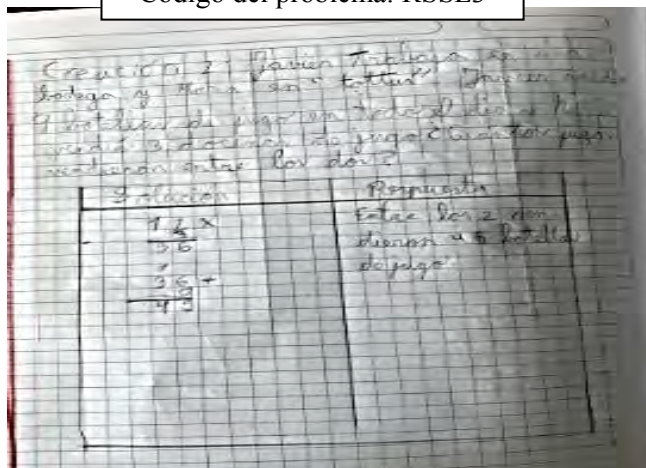 Código del problema: RSSE3
Creación 2: Javier Trabaja en una
bodega y en "tottus" Javier
9 botellas de jugo en todo el dia
3 docenas de jugo ¿Cuantos jugos
vendieron entre los dos?
Solución
Respuesta
12 x
3
36
36 +
9
45
Entre los 2 ven
dieron 45 botellas
de jugo